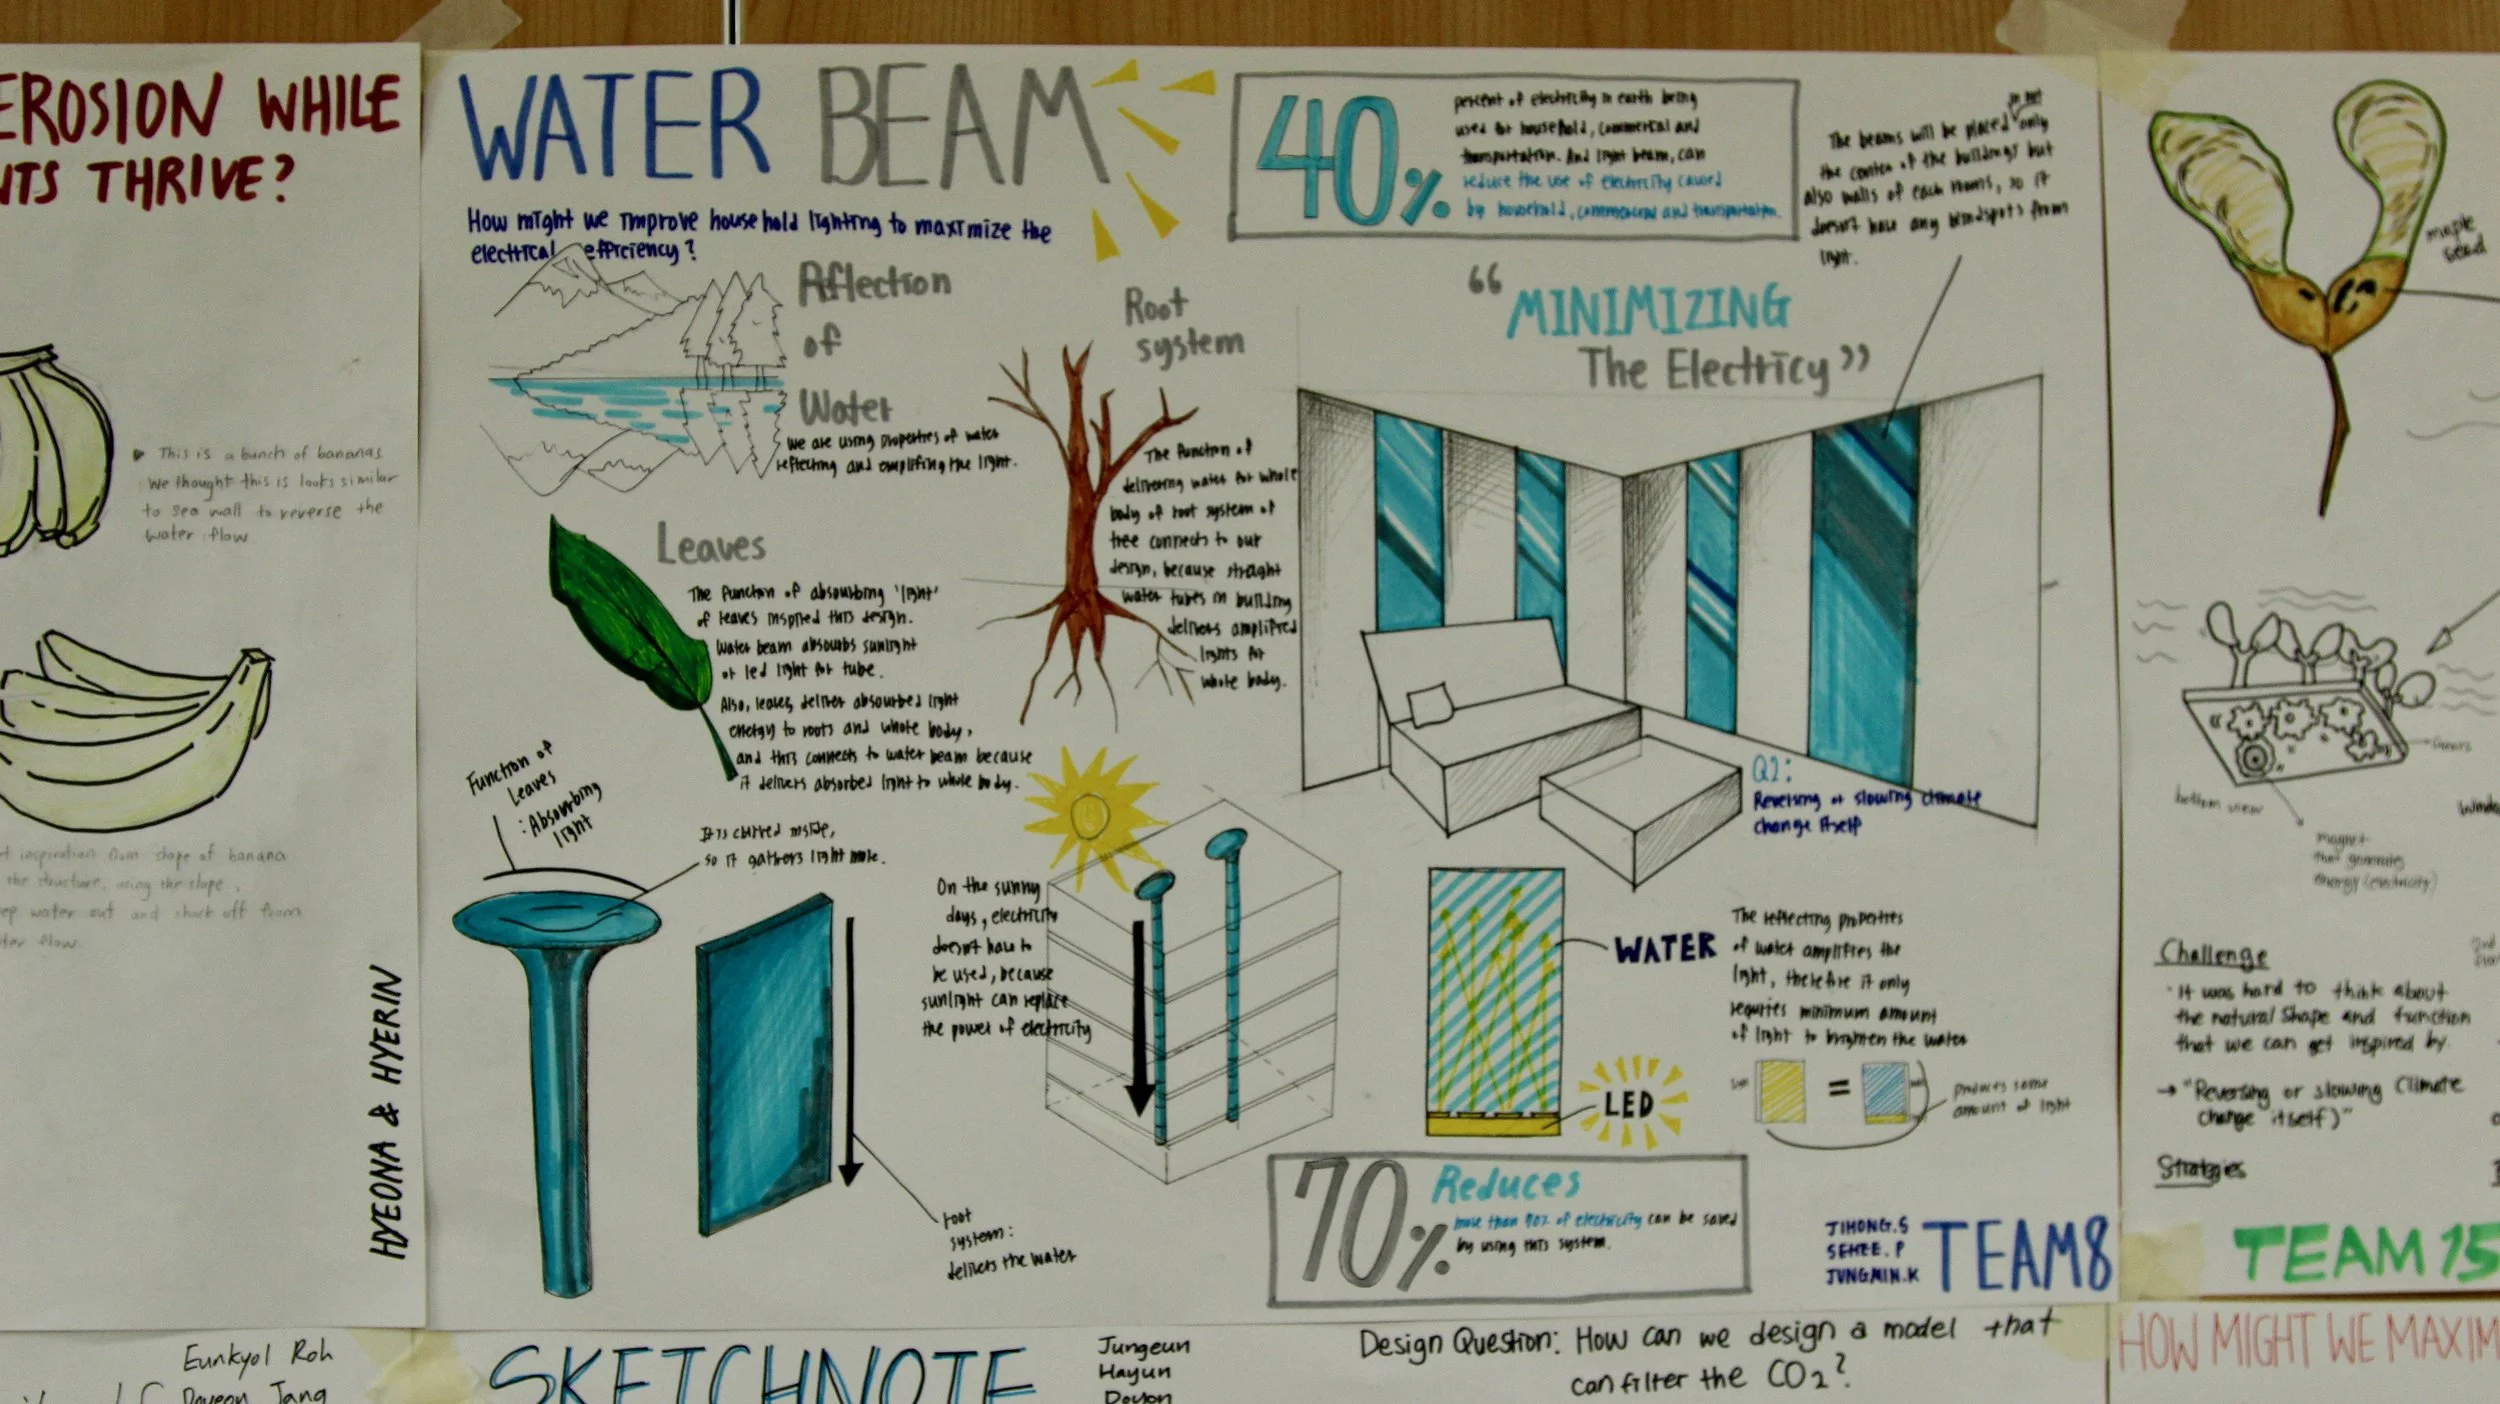 EROSION WHILE
NTS THRIVE?
▶ This is a bunch of bananas
We thought this is looks similar
to sea wall to reverse the
water flow
inspiration from shape of banana
the structure, using the slope,
water out and shut off from
flow.
HYEONA & HYERIN
WATER BEAM
How might we improve household lighting to maximize the
electrical efficiency?
Aflection
of
Water
We are using properties of water
reflecting and amplifing the light.
Leaves
The function of absourbing 'light'
of leaves inspired this design.
Water beam absourbs sunlight
or led light for tube.
Also, leaves deliver absourbed light
energy to roots and whole body,
and this connects to water beam because
it delivers absorbed light to whole body.
Root
system
The function of
delivering water for whole
body of root system of
tree connects to our
design, because straight
water tubes in building
delivers amplified
lights for
whole body.
40%
percent of electricity in earth being
used for household, commercial and
transportation. And light beam, can
reduce the use of electricity caused
by household, commercial and transportation.
The beams will be placed in not only
the center of the buildings but
also walls of each rooms, so it
doesn't have any blindspots from
light.
"MINIMIZING
The Electricy"
Function of
Leaves
: Absourbing
light
It is curved inside,
so it gathers light more.
root
system:
delivers the water
On the sunny
days, electricity
doesn't have to
be used, because
sunlight can replace
the power of electricity
Q2:
Reversing or slowing climate
change itself
WATER
LED
The reflecting properties
of water amplifies the
light, therefore it only
requires minimum amount
of light to brighten the water
=
produces same
amount of light
70%
Reduces
more than 70% of electricity can be saved
by using this system.
JIHONG.S
SEHEE.P
JUNGMIN.K
TEAM8
maple
seed
bottom view
magnet
that generates
energy (electricity)
Challenge
· It was hard to think about
the natural shape and function
that we can get inspired by.
→ "Reversing or slowing Climate
change itself)"
Strategies
TEAM 15
Eunkyol Roh
Doyeon Jang
SKETCHNOTE
Jungeun
Hayun
Doyon
Design Question: How can we design a model that
can filter the CO2?
HOW MIGHT WE MAXIM